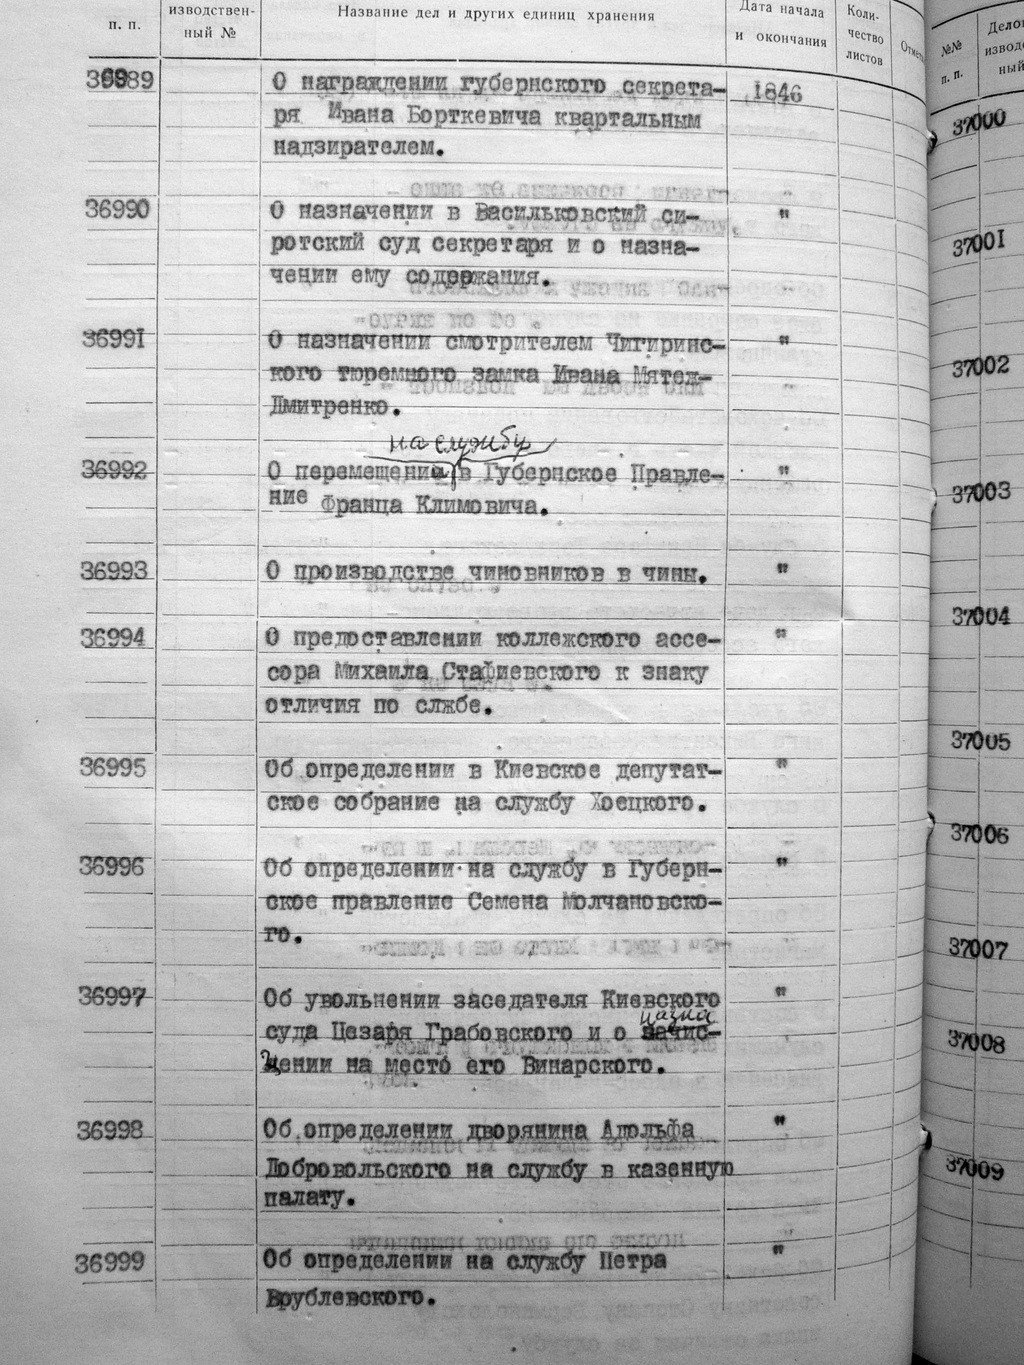 п. п.
изводствен-
ный №
Название дел и других единиц хранения
Дата начала
и окончания
Коли-
чество
листов
36989 О награждении губернского секрета- 1846
ря Ивана Борткевича квартальным
надзирателем.
36990 О назначении в Васильковский си- "
ротский суд секретаря и о назна-
чении ему содержания.
36991 О назначении смотрителем Чигиринс- "
кого тюремного замка Ивана Мятел-
Дмитренко.
на службу
36992 О перемещении в Губернское Правле- "
ние Франца Климовича.
36993 О производстве чиновников в чины. "
36994 О предоставлении коллежского ассе- "
сора Михаила Стафиевского к знаку
отличия по слжбе.
36995 Об определении в Киевское депутат- "
ское собрание на службу Хоецкого.
36996 Об определении на службу в Губерн- "
ское правление Семена Молчановско-
го.
36997 Об увольнении заседателя Киевского "
назна
суда Цезаря Грабовского и о зачис-
чении на место его Винарского.
36998 Об определении дворянина Адольфа "
Добровольского на службу в казенную
палату.
36999 Об определении на службу Петра "
Врублевского.
№№
п. п.
37000
37001
37002
37003
37004
37005
37006
37007
37008
37009